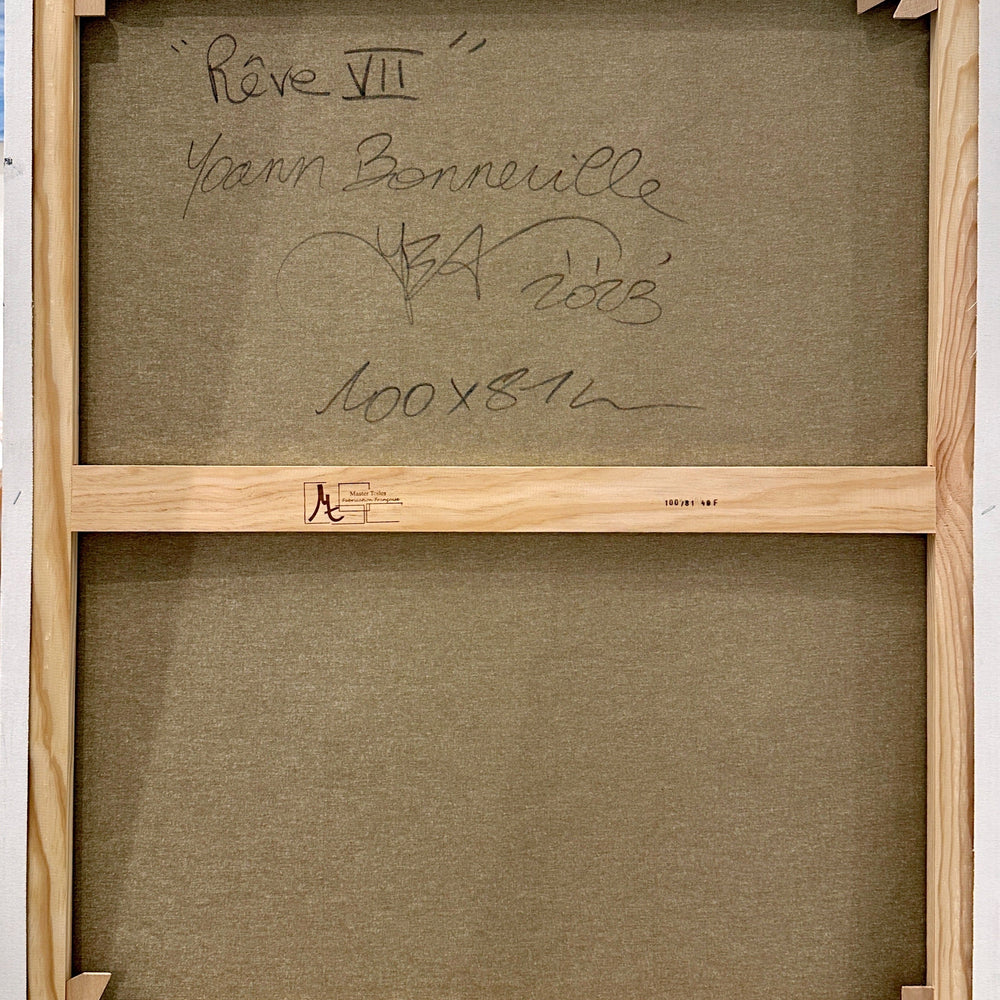 "Rêve VII"
Yoann Bonneville
YBA 2023
100 x 81
Master Toiles
Fabrication Française
100/81 40 F